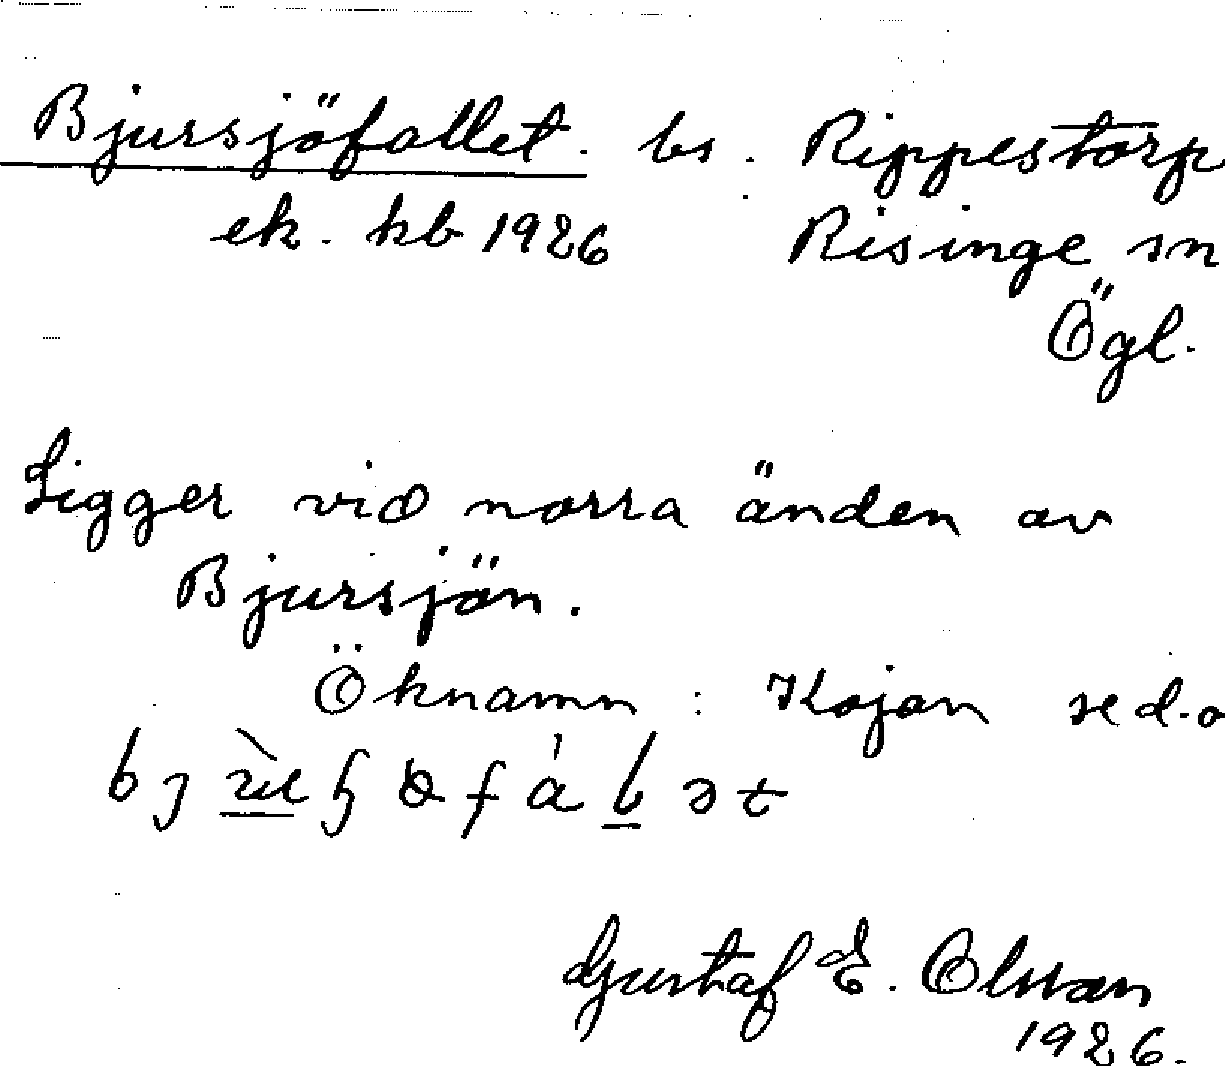 Bjursjöfallet. bs. Rippestorp
ek. kb 1926 Risinge sn
Ögl.
Ligger vid norra änden av
Bjursjön.
Öknamn : Kojan se d.o
Gustaf E. Olsson
1926.